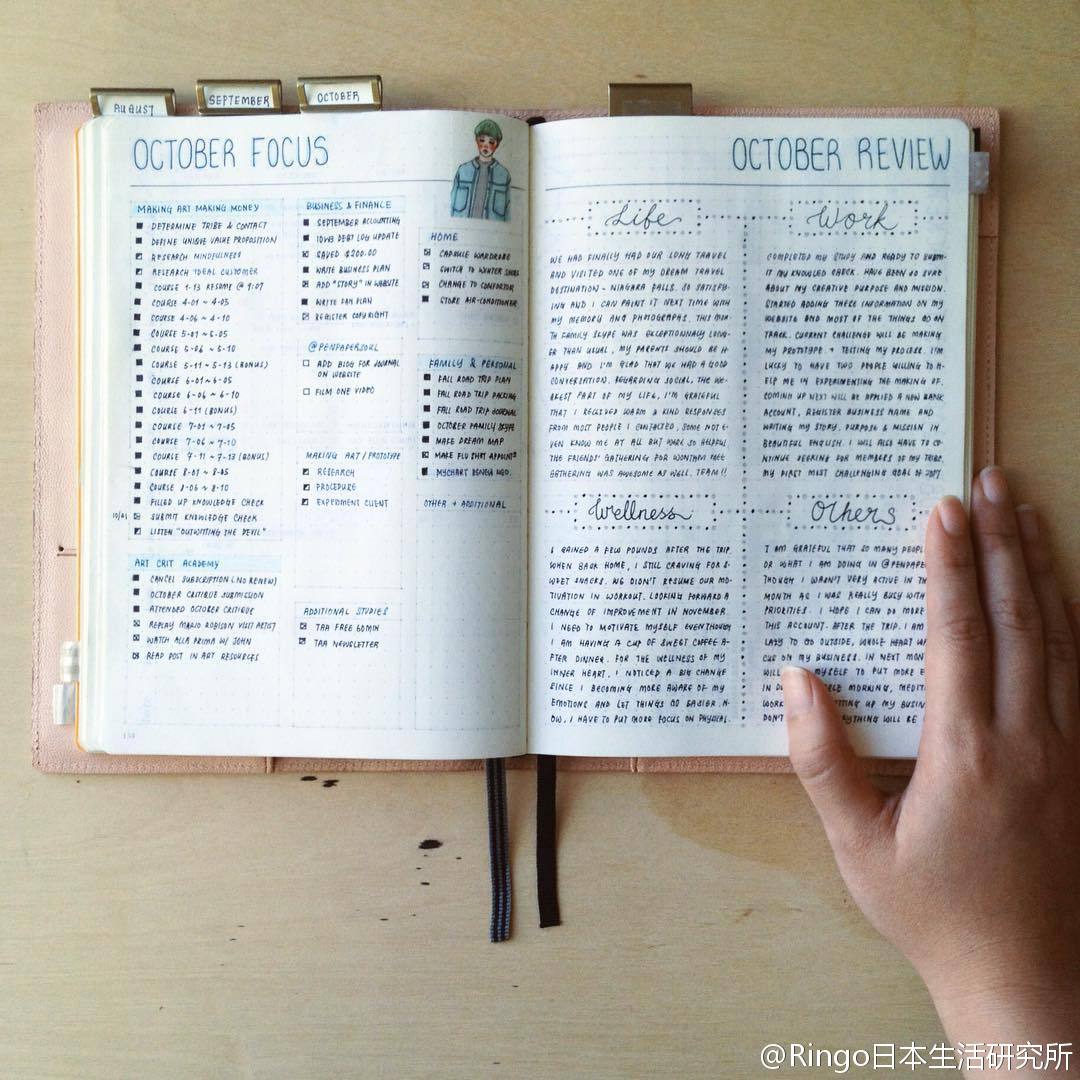 AUGUST
SEPTEMBER
OCTOBER
OCTOBER FOCUS
MAKING ART MAKING MONEY
DETERMINE TRIBE & CONTACT
DEFINE UNIQUE VALUE PROPOSITION
RESEARCH MINDFULNESS
RESEARCH IDEAL CUSTOMER
COURSE 1-13 RESUME @ 9:07
COURSE 4-01 ~ 4-05
COURSE 4-06 ~ 4-10
COURSE 5-01 ~ 5-05
COURSE 5-06 ~ 5-10
COURSE 5-11 ~ 5-13 (BONUS)
COURSE 6-01 ~ 6-05
COURSE 6-06 ~ 6-10
COURSE 6-11 (BONUS)
COURSE 7-01 ~ 7-05
COURSE 7-06 ~ 7-10
COURSE 7-11 ~ 7-13 (BONUS)
COURSE 8-01 ~ 8-05
COURSE 8-06 ~ 8-10
FILLED UP KNOWLEDGE CHECK
SUBMIT KNOWLEDGE CHECK
LISTEN "OUTWITTING THE DEVIL"
ART CRIT ACADEMY
CANCEL SUBSCRIPTION (NO RENEW)
OCTOBER CRITIQUE SUBMISSION
ATTENDED OCTOBER CRITIQUE
REPLAY MARIO ROBISON VISIT ARTIST
WATCH ALLA PRIMA W/ JOHN
READ POST IN ART RESOURCES
BUSINESS & FINANCE
SEPTEMBER ACCOUNTING
DEBT LOG UPDATE
SAVED $200.00
WRITE BUSINESS PLAN
ADD "STORY" IN WEBSITE
WRITE PLAN
REGISTER COPYRIGHT
@PENPAPERSOUL
ADD BLOG FOR JOURNAL
ON WEBSITE
FILM ONE VIDEO
MAKING ART / PROTOTYPE
RESEARCH
PROCEDURE
EXPERIMENT CLIENT
ADDITIONAL STUDIES
TAA FREE 60MIN
TAA NEWSLETTER
HOME
CAPSULE WARDROBE
SWITCH TO WINTER SHOES
CHANGE TO COMFORTER
STORE AIR-CONDITIONER
FAMILY & PERSONAL
FALL ROAD TRIP PLAN
FALL ROAD TRIP PACKING
FALL ROAD TRIP JOURNAL
OCTOBER FAMILY SKYPE
MAKE DREAM MAP
MAKE FLU SHOT APPOINT
MYCHART RENEW
OTHER + ADDITIONAL
OCTOBER REVIEW
Life
WE HAD FINALLY HAD OUR LONG TRAVEL
AND VISITED ONE OF MY DREAM TRAVEL
DESTINATION - NIAGARA FALLS. SO SATISFY-
ING AND I CAN PAINT IT NEXT TIME WITH
MY MEMORY AND PHOTOGRAPHS. THIS MON
TH FAMILY SKYPE WAS EXCEPTIONNALLY LONG-
ER THAN USUAL, MY PARENTS SHOULD BE H
APPY AND I'M GLAD THAT WE HAD A GOOD
CONVERSATION. REGARDING SOCIAL, THE WE-
AKEST PART OF MY LIFE, I'M GRATEFUL
THAT I RECEIVED WARM & KIND RESPONSES
FROM MOST PEOPLE I CONTACTED, SOME NOT E-
VEN KNOW ME AT ALL BUT WERE SO HELPFUL.
THE FRIENDS' GATHERING FOR WONTAN FREE
GATHERING WAS AWESOME AS WELL. YEAH!!
Work
COMPLETED MY STUDY AND READY TO SUBM-
IT MY KNOWLED CHECK. HAVE BEEN SO SURE
ABOUT MY CREATIVE PURPOSE AND MISSION.
STARTED ADDING THESE INFORMATION ON MY
WEBSITE AND MOST OF THE THINGS GO ON
TRACK. CURRENT CHALLENGE WILL BE MAKING
MY PROTOTYPE + TESTING MY PROCESS. I'M
LUCKY TO HAVE TWO PEOPLE WILLING TO H-
ELP ME IN EXPERIMENTING THE MAKING OF.
COMING UP NEXT WILL BE APPLIED A NEW BANK
ACCOUNT, REGISTER BUSINESS NAME AND
WRITING MY STORY, PURPOSE & MISSION IN
BEAUTIFUL ENGLISH. I WILL ALSO HAVE TO CO-
NTINUE SEEKING FOR MEMBERS OF MY TRIBE,
MY FIRST MOST CHALLENGING GOAL OF 2017.
Wellness
I GAINED A FEW POUNDS AFTER THE TRIP.
WHEN BACK HOME, I STILL CRAVING FOR S-
WEET SNACKS. WE DIDN'T RESUME OUR MO-
TIVATION IN WORKOUT. LOOKING FORWARD A
CHANGE OF IMPROVEMENT IN NOVEMBER.
I NEED TO MOTIVATE MYSELF EVENTHOUGH
I AM HAVING A CUP OF SWEET COFFEE A-
FTER DINNER. FOR THE WELLNESS OF MY
INNER HEART, I NOTICED A BIG CHANGE
SINCE I BECOMING MORE AWARE OF MY
EMOTIONS AND LET THINGS GO EASIER. N-
OW, I HAVE TO PUT MORE FOCUS ON PHYSICAL.
Others
I AM GRATEFUL THAT SO MANY PEOPL
OR WHAT I AM DOING IN @PENPAPE
THOUGH I WASN'T VERY ACTIVE IN TH
MONTH AS I WAS REALLY BUSY WITH
PRIORITIES. I HOPE I CAN DO MORE
THIS ACCOUNT. AFTER THE TRIP, I AM
LAZY TO GO OUTSIDE, WHOLE HEART W
CUS ON MY BUSINESS. IN NEXT MON
WILL MYSELF TO PUT MORE E
IN MORNING, MEDIT
WORK UP MY BUSIN
DON'T THING WILL BE
@Ringo日本生活研究所